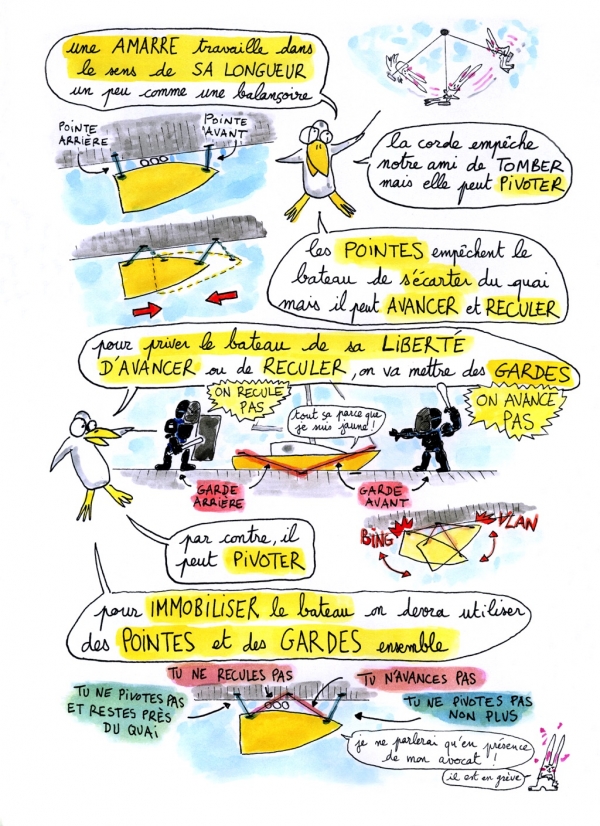 une AMARRE travaille dans
le sens de SA LONGUEUR
un peu comme une balançoire
POINTE
ARRIÈRE
POINTE
AVANT
la corde empêche
notre ami de TOMBER
mais elle peut PIVOTER
les POINTES empêchent le
bateau de s'écarter du quai
mais il peut AVANCER et RECULER
pour priver le bateau de sa LIBERTÉ
D'AVANCER ou de RECULER, on va mettre des GARDES
ON RECULE
PAS
tout ça parce que
je suis jaune!
ON AVANCE
PAS
GARDE
ARRIÈRE
GARDE
AVANT
par contre, il
peut PIVOTER
BING
VLAN
pour IMMOBILISER le bateau on devra utiliser
des POINTES et des GARDES ensemble
TU NE RECULES PAS
TU N'AVANCES PAS
TU NE PIVOTES PAS
ET RESTES PRÈS
DU QUAI
TU NE PIVOTES PAS
NON PLUS
je ne parlerai qu'en présence
de mon avocat!
il est en grève